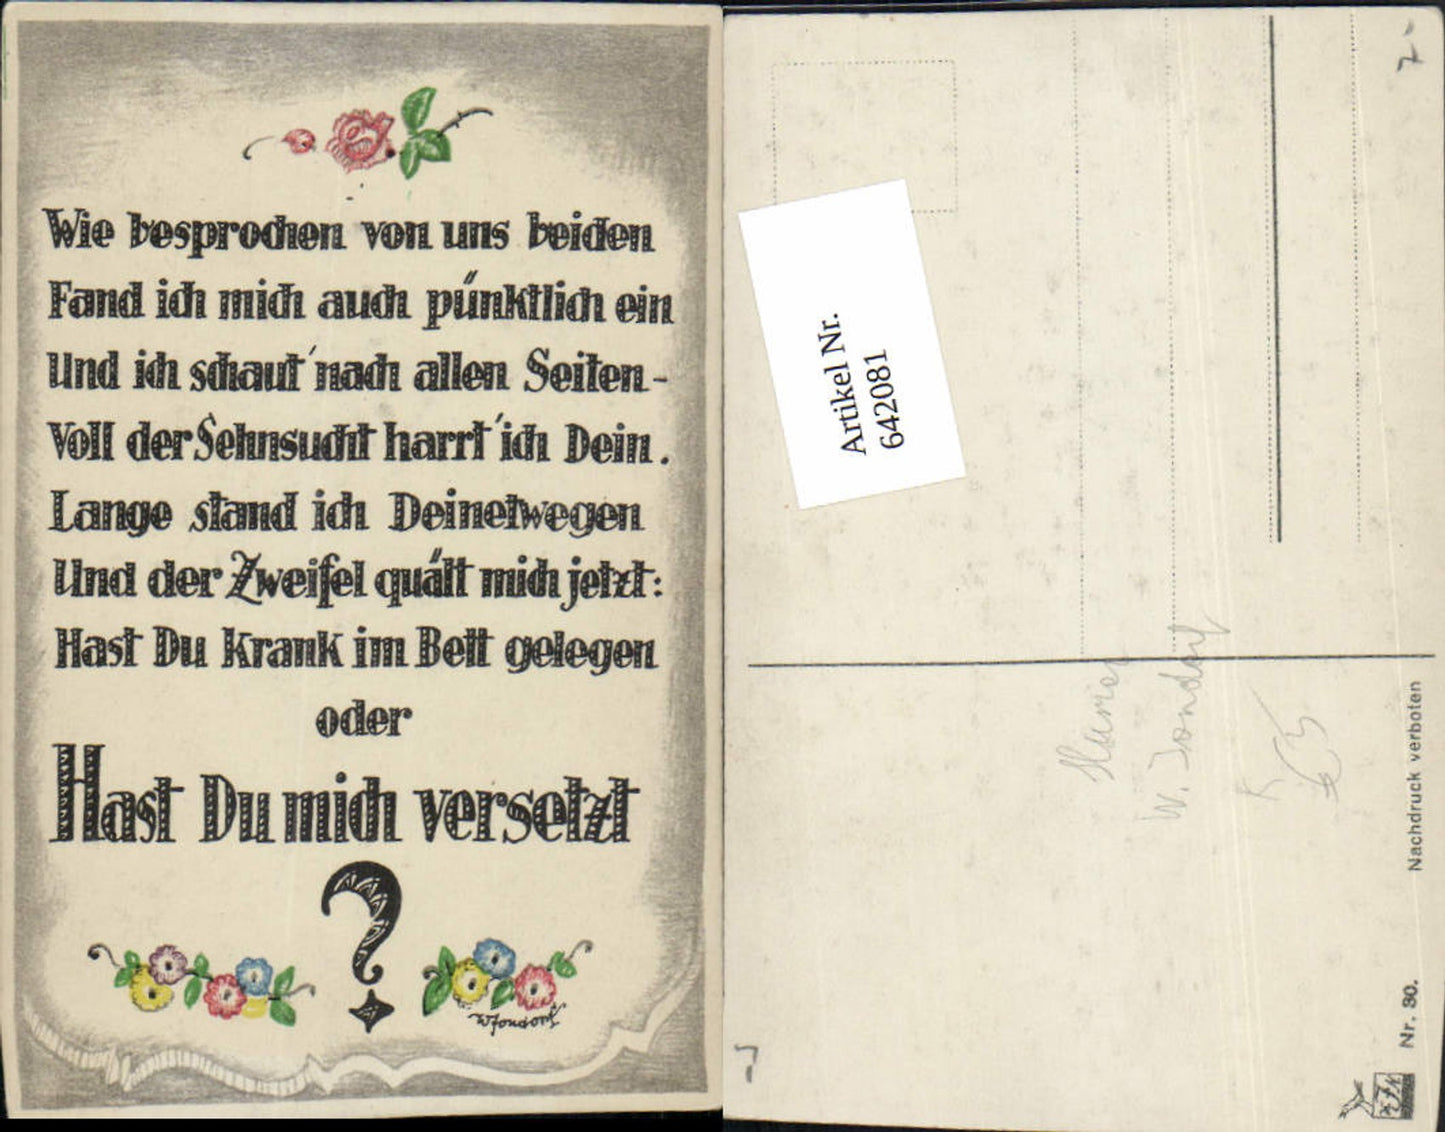 Wie besprochen von uns beiden
Fand ich mich auch pünktlich ein
Und ich schaut' nach allen Seiten -
Voll der Sehnsucht harrt' ich Dein.
Lange stand ich Deinetwegen
Und der Zweifel quält mich jetzt:
Hast Du Krank im Bett gelegen
oder
Hast Du mich versetzt
?
WJondorf
Artikel Nr.
642081
7-
W. Jondorf
Nachdruck verboten
Nr. 30.